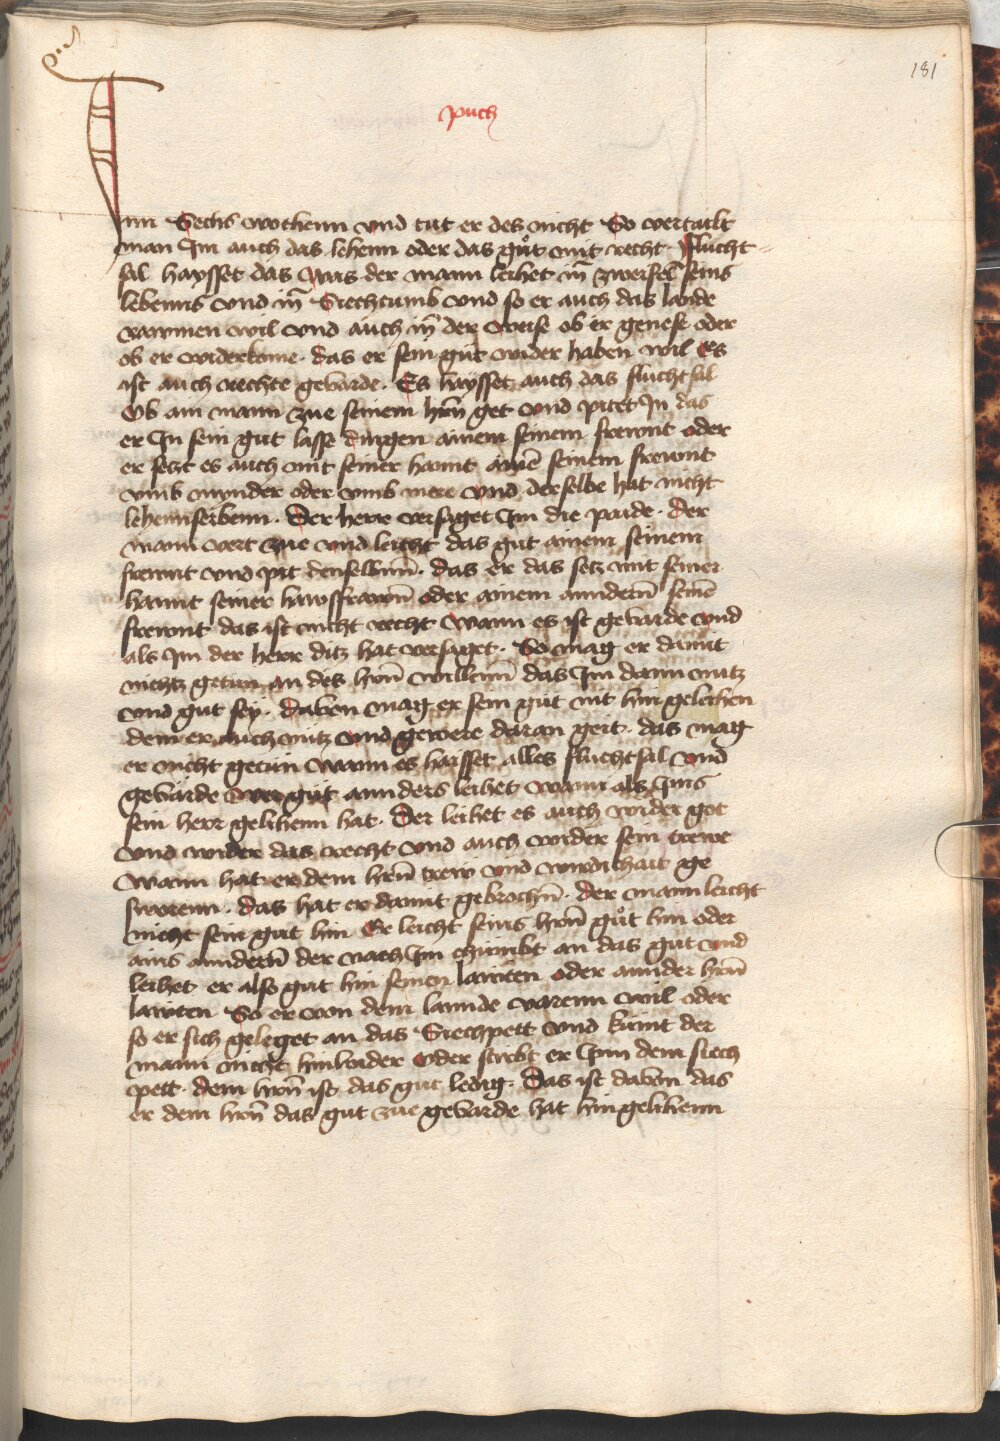 181
puch
Inn Sechs wochenn vnd tut er des nicht So vertailt
man Im auch das lehenn oder das gůt mit recht Flucht-
sal haysset das Was der mann leihet in̄ zweifel seins
lebenns vnd in̄ Siechtumb vnd so er auch das lannde
rawmen wil vnd auch in̄ der weise ob er genese oder
ob er widerkome · das er sein gut wider haben wil Es
ist auch rechte gevarde · Es haysset auch das fluchtsal
Ob ain mann zue seinem hrn̄ get vnd pitet In das
er In sein gut lasse dingen ainem seinem frewnt oder
er setzt es auch mit seiner hannt aine͂ seinem frewnt
vmb mynder oder vmb mere vnd derselbe hat nicht
lehennserbenn · Der herre versaget Im die paide · der
mann vert zue vnd leicht das gut ainem seinem
frewnt vnd pit denselbenn̄ · das er das setz mit seiner
hannt seiner hawsfrawn̄ oder ainem anndern̄ seine͂
frewnt das ist nicht recht Wann es ist gevarde vnd
als Im der herr ditz hat versaget · So mag er damit
nichtz getun an des hrn̄ willenn̄ das Im dann nutz
vnd gut sey · davon mag er sein gut nit hin geleihen
dem er auch nutz vnd gewere daran geit · das mag
er nicht getun wann es haisset alles fluchtsal vnd
gevarde Wer gut annders leihet wann als Ims
sein herr gelihenn hat · Der leihet es auch wider got
vnd wider das recht vnd auch wider sein trewe
Wann hat er dem hrn̄ trew vnd wirdichait ge
sworenn · das hat er damit gebrochn̄ · der mann leicht
nicht sein gut hin Er leicht seins hrn̄ gůt hin oder
ains anndern̄ der nach Im chumbt an das gut vnd
leihet er also gut hin seinen lawten oder annder hrn̄
lawten So er von dem lannde varenn wil oder
so er sich geleget an das Siechpett vnd kumt der
mann nicht hinwider Oder stirbt er Inn dem siech
pett · dem hrn̄ ist das gut ledig · Das ist davon das
er dem hrn̄ das gut zue gevarde hat hingelihenn